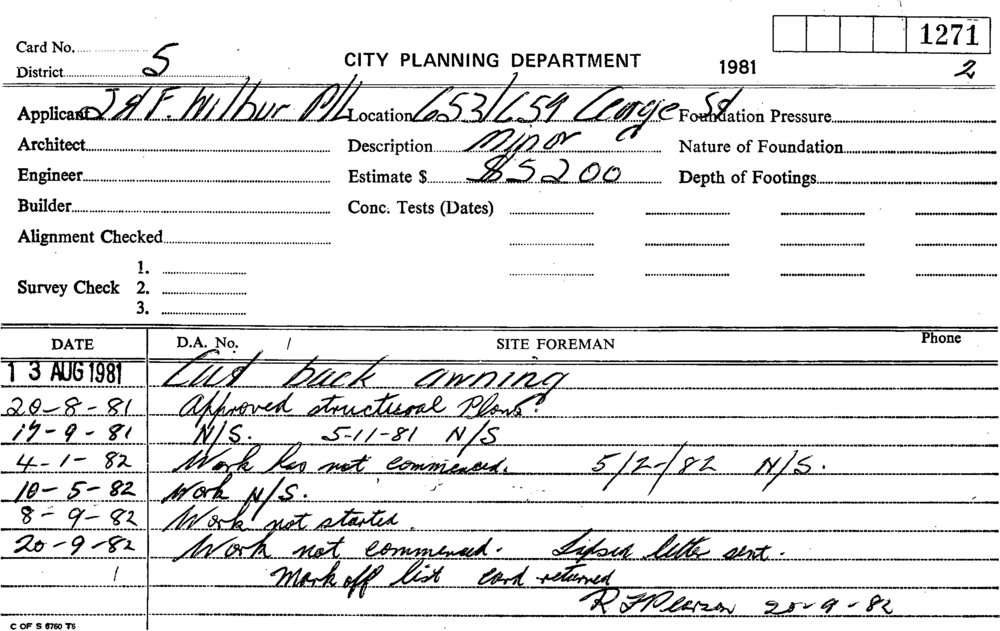 1271
Card No. 5
CITY PLANNING DEPARTMENT
District 1981 2
Applicant J & F. Wilbur P/L Location 653/659 George St Foundation Pressure
Architect Description Minor Nature of Foundation
Engineer Estimate $ $5200 Depth of Footings
Builder Conc. Tests (Dates)
Alignment Checked
1.
Survey Check 2.
3.
DATE D.A. No. / SITE FOREMAN Phone
13 AUG 1981 Cut back awning
20-8-81 Approved structural Plans.
17-9-81 N/S. 5-11-81 N/S
4-1-82 Work has not commenced. 5/2/82 N/S.
10-5-82 Work N/S.
8-9-82 Work not started.
20-9-82 Work not commenced. Lapsed letter sent.
Mark off list card returned
R F Pearson 20-9-82
C OF S 6760 T6